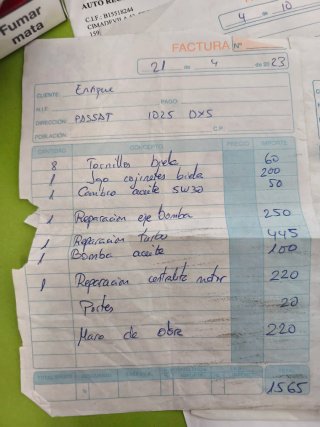 Fumar
mata
AUTO RE
C.I.F.: B15518244
159
4 de 10
FACTURA Nº
21 de 4 de 2023
CLIENTE: Enrique
N.I.F. PAGO
DIRECCIÓN PASSAT 1025 DXS
POBLACIÓN: C.P.
CANTIDAD CONCEPTO PRECIO IMPORTE
8 Tornillos biela 60
1 Jgo cojinetes biela 200
1 Cambio aceite 5W30 50
1 Reparacion eje bomba 250
1 Reparacion turbo 445
1 Bomba aceite 100
1 Reparacion centralita motor 220
Portes 20
Mano de obra 220
1565